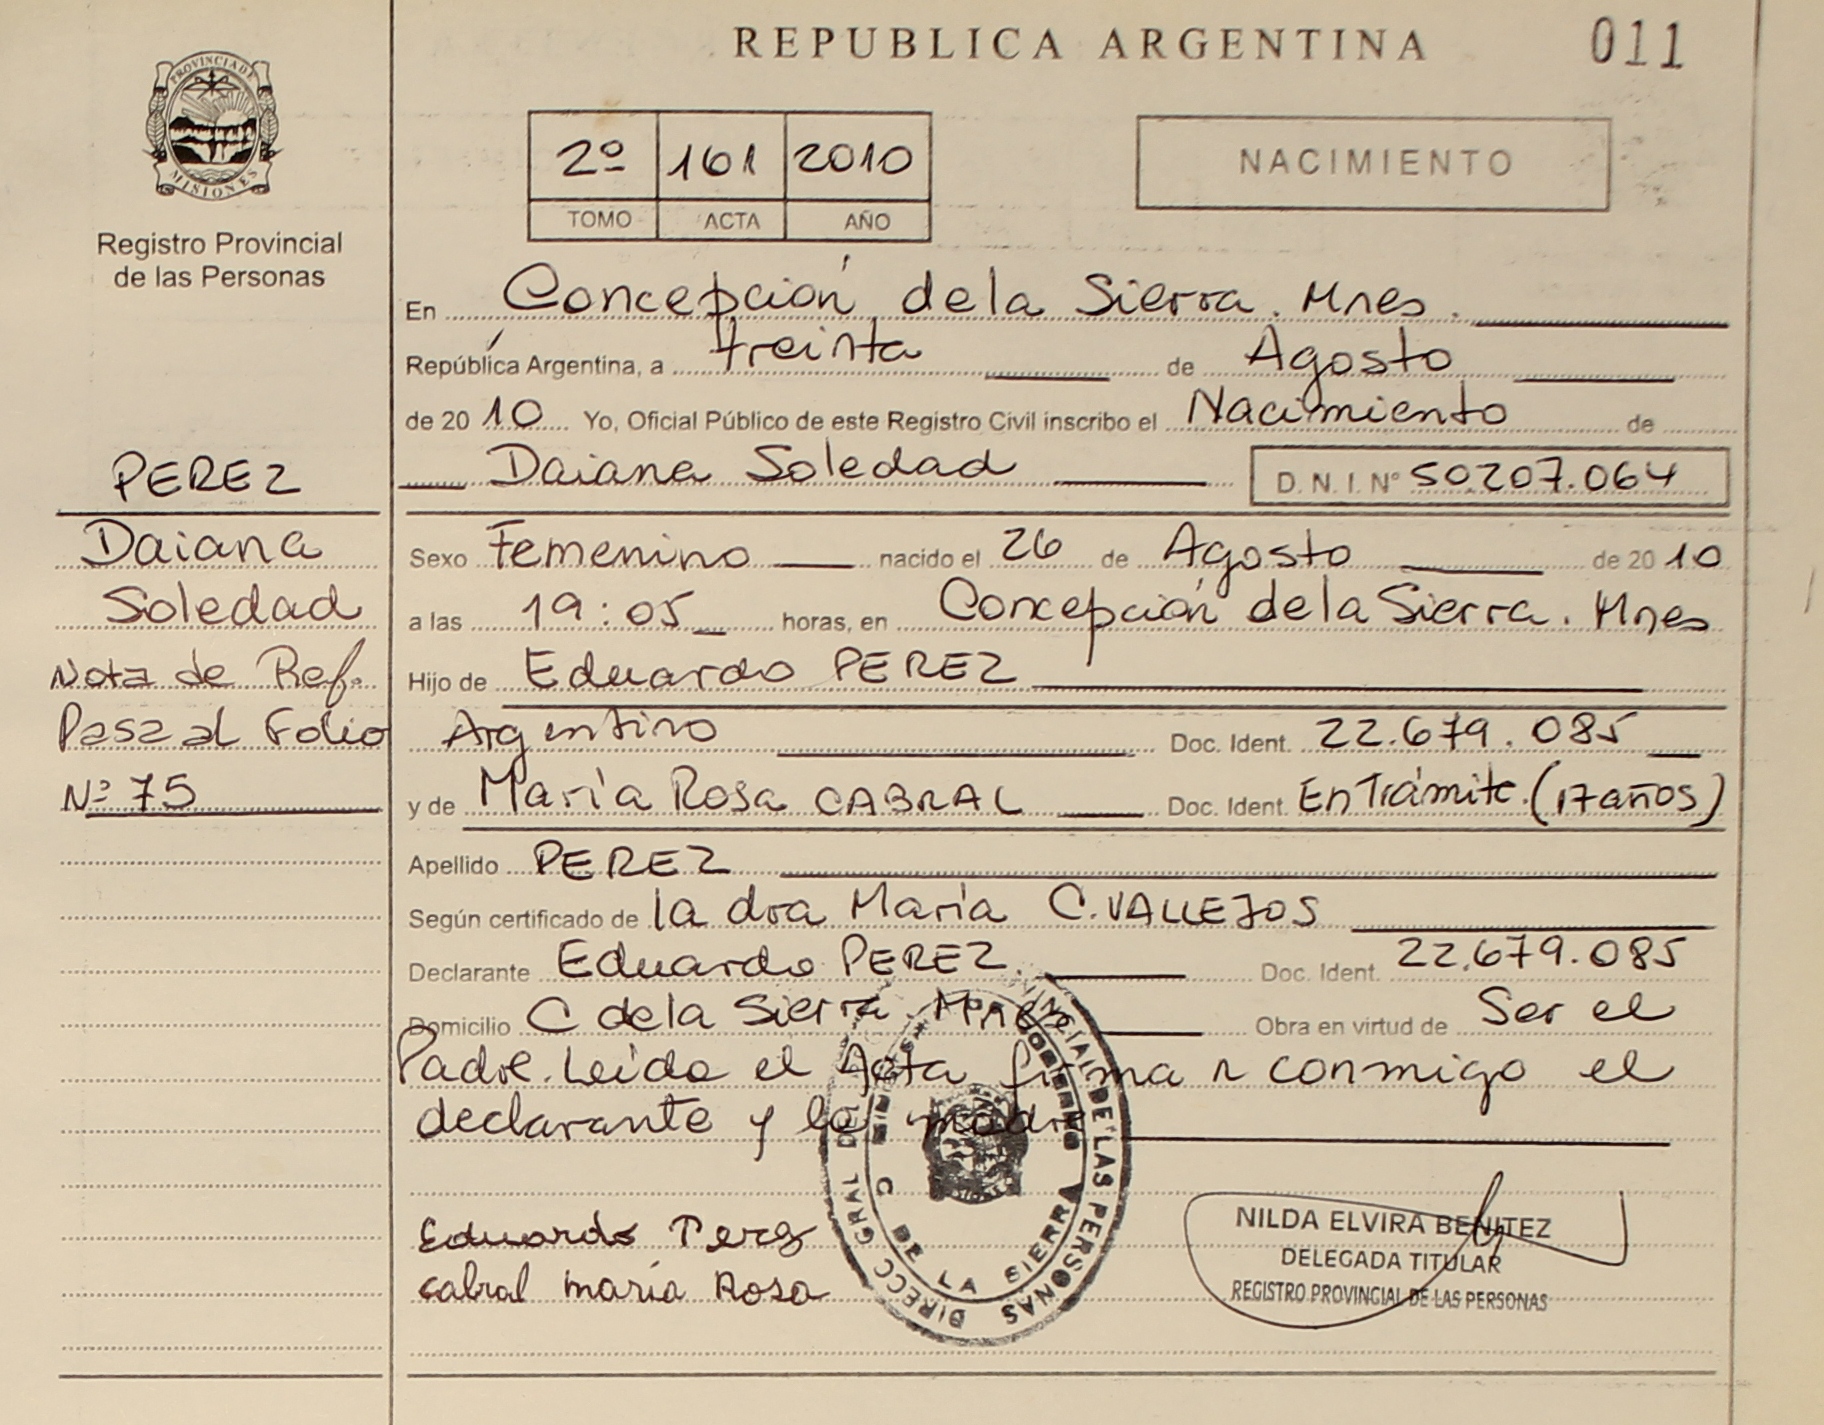 REPUBLICA ARGENTINA
011
PROVINCIA DE
MISIONES
Registro Provincial
de las Personas
2º 161 2010
TOMO ACTA AÑO
NACIMIENTO
En Concepción de la Sierra. Mnes.
República Argentina, a treinta de Agosto
de 2010 Yo, Oficial Público de este Registro Civil inscribo el Nacimiento de
Daiana Soledad D. N. I. Nº 50.207.064
PEREZ
Daiana
Soledad
Nota de Ref.
Pasa al Folio
Nº 75
Sexo Femenino nacido el 26 de Agosto de 2010
a las 19:05 horas, en Concepción de la Sierra. Mnes
Hijo de Eduardo PEREZ
Argentino Doc. Ident. 22.679.085
y de María Rosa CABRAL Doc. Ident. En Trámite. (17 años)
Apellido PEREZ
Según certificado de la dra María C. VALLEJOS
Declarante Eduardo PEREZ. Doc. Ident. 22.679.085
Domicilio C de la Sierra Mnes Obra en virtud de Ser el
Padre. Leida el Acta firma n conmigo el
declarante y la madre
Eduardo Perez
Cabral maria Rosa
DIRECC GRAL PROVINCIAL DE LAS PERSONAS
C DE LA SIERRA
NILDA ELVIRA BENITEZ
DELEGADA TITULAR
REGISTRO PROVINCIAL DE LAS PERSONAS